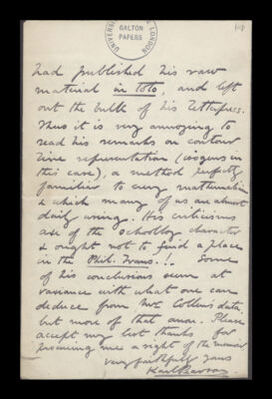 UNIVERSITY LONDON
GALTON
PAPERS
had published his raw
material in toto, and left
out the bulk of his letterpress.
Thus it is very annoying to
read his remarks on contour
line representation (isogens in
this case), a method perfectly
familiar to every mathematician
& which many of us are almost
daily using. His criticisms
are of the schoolboy character
& ought not to find a place
in the Phil. Trans.!. Some
of his conclusions seem at
variance with what one can
deduce from Mr Collins' data,
but more of that anon. Please
accept my best thanks for
procuring me a sight of the memoir
very faithfully yours
Karl Pearson